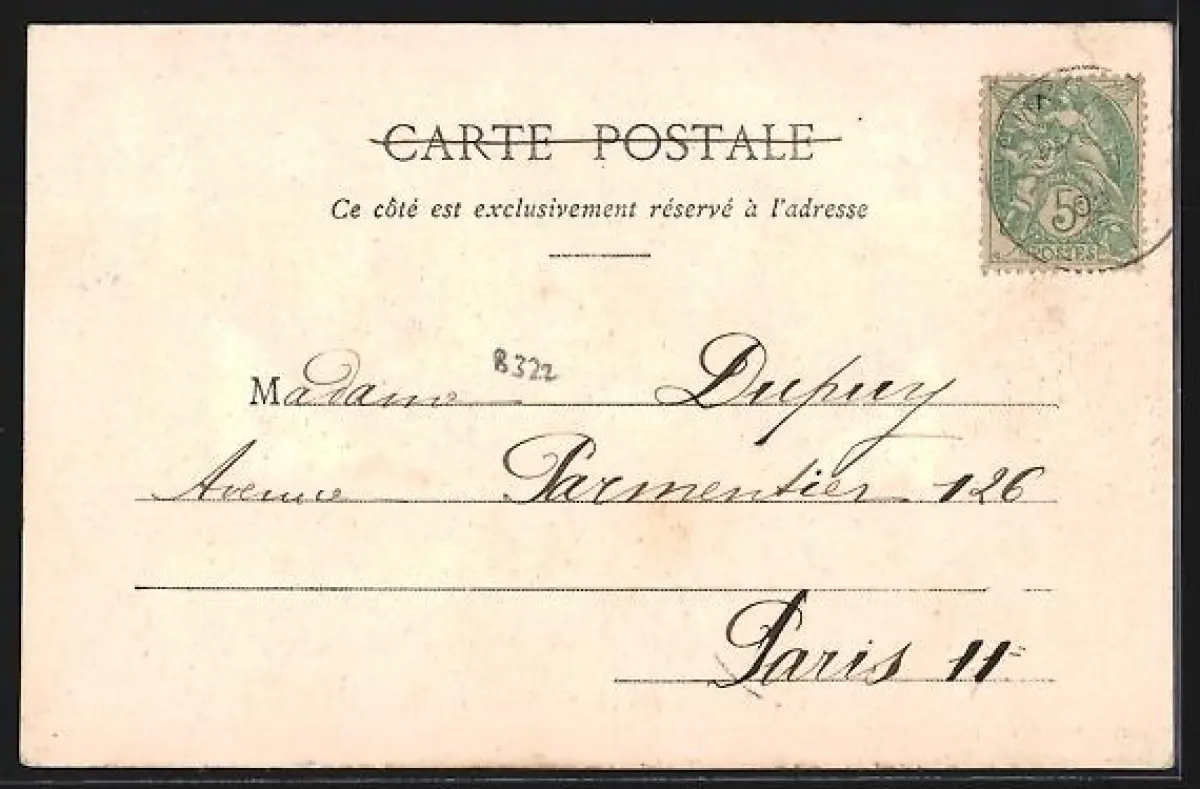 CARTE POSTALE
Ce côté est exclusivement réservé à l'adresse
5c
POSTES
B322
Madame Dupuy
Avenue Parmentier 126
Paris 11